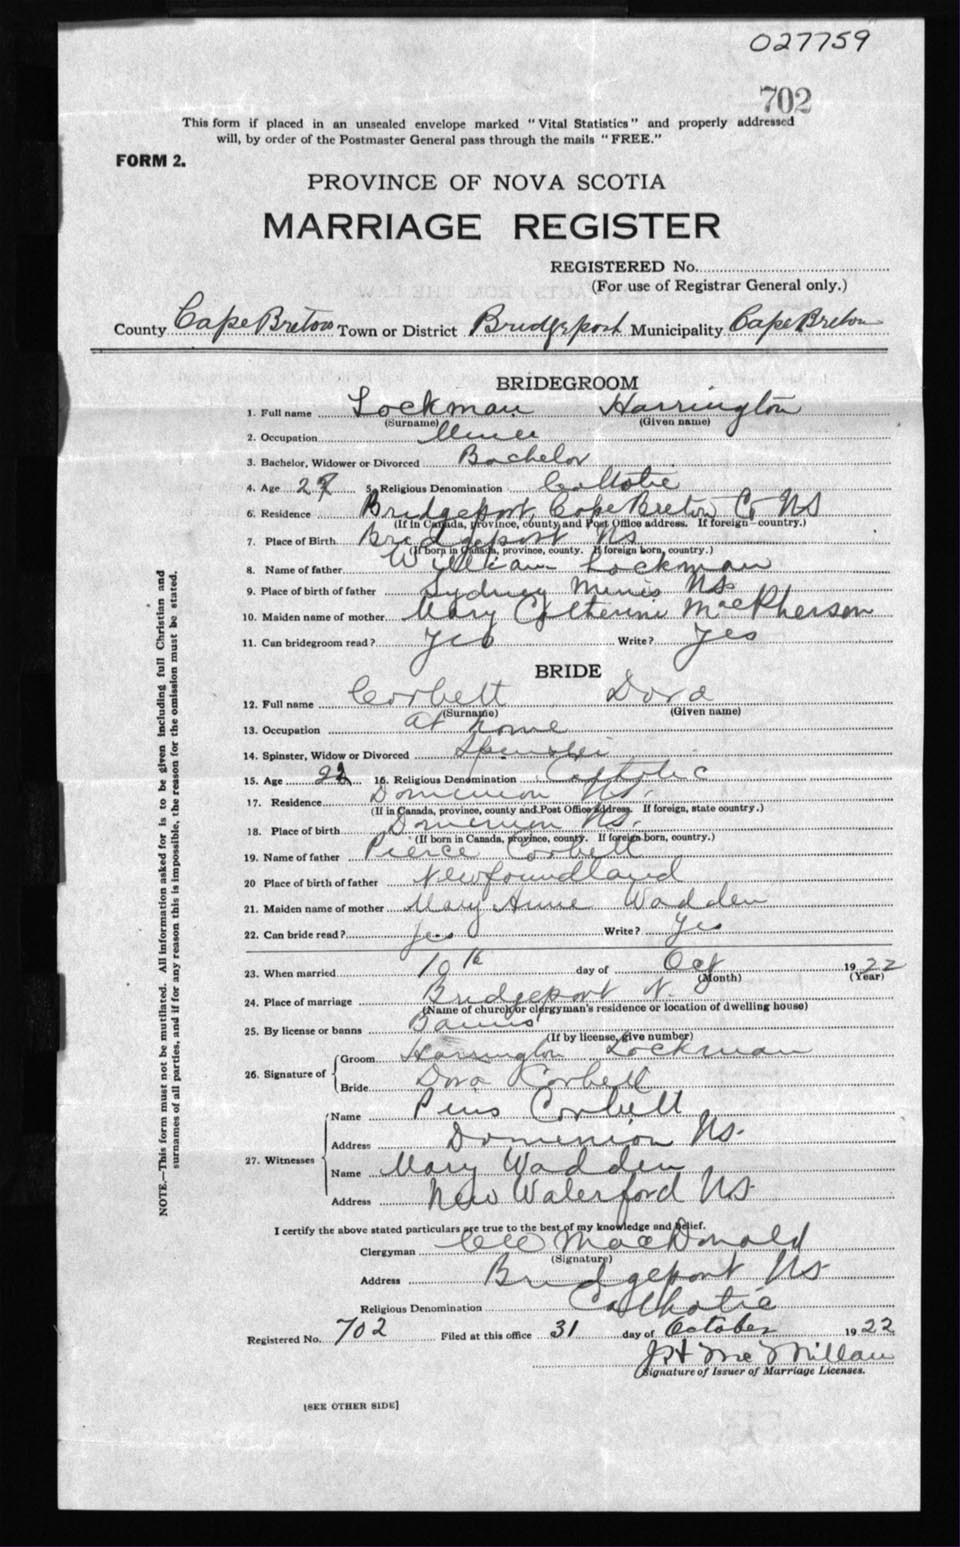 027759
702
This form if placed in an unsealed envelope marked "Vital Statistics" and properly addressed
will, by order of the Postmaster General pass through the mails "FREE."
FORM 2.
PROVINCE OF NOVA SCOTIA
MARRIAGE REGISTER
REGISTERED No.
(For use of Registrar General only.)
County Cape Breton Town or District Bridgeport Municipality Cape Breton
BRIDEGROOM
1. Full name Lockman Harrington
(Surname) (Given name)
2. Occupation Miner
3. Bachelor, Widower or Divorced Bachelor
4. Age 5. Religious Denomination Catholic
6. Residence Bridgeport Cape Breton Co NS
(If in Canada, province, county and Post Office address. If foreign—country.)
7. Place of Birth Bridgeport NS
(If born in Canada, province, county. If foreign born, country.)
8. Name of father William Lockman
9. Place of birth of father Sydney Mines NS
10. Maiden name of mother Mary Catherine MacPherson
11. Can bridegroom read? Yes Write? Yes
BRIDE
12. Full name Corbett Dora
(Surname) (Given name)
13. Occupation at home
14. Spinster, Widow or Divorced Spinster
15. Age 16. Religious Denomination Catholic
17. Residence Dominion NS.
(If in Canada, province, county and Post Office address. If foreign, state country.)
18. Place of birth Dominion NS.
(If born in Canada, province, county. If foreign born, country.)
19. Name of father Pierce Corbett
20 Place of birth of father Newfoundland
21. Maiden name of mother Mary Anne Wadden
22. Can bride read? Yes Write? Yes
23. When married 19th day of Oct 1922
(Month) (Year)
24. Place of marriage Bridgeport N.
(Name of church or clergyman's residence or location of dwelling house)
25. By license or banns Banns
(If by license, give number)
26. Signature of
Groom Harrington Lockman
Bride Dora Corbett
27. Witnesses
Name Pius Corbett
Address Dominion NS.
Name Mary Wadden
Address New Waterford NS
I certify the above stated particulars are true to the best of my knowledge and belief.
Clergyman MacDonald
(Signature)
Address Bridgeport NS
Religious Denomination Catholic
Registered No. 702 Filed at this office 31 day of October 1922
JH McMillan
Signature of Issuer of Marriage Licenses.
[SEE OTHER SIDE]
NOTE.—This form must not be mutilated. All information asked for is to be given including full Christian and
surnames of all parties, and if for any reason this is impossible, the reason for the omission must be stated.